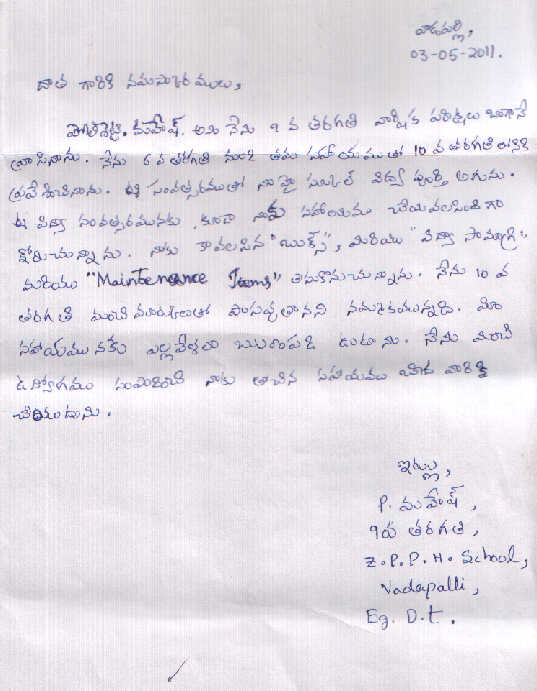 వాడపల్లి,
03-05-2011.
దాత గారికి నమస్కారములు,
పోతంశెట్టి. మహేష్. అను నేను 9 వ తరగతి వార్షిక పరీక్షలు బాగానే
వ్రాసినాను. నేను 6 వ తరగతి నుండి తమ సహాయముతో 10 వ తరగతి లోనికి
ప్రవేశించినాను. ఈ సంవత్సరముతో నా హై స్కూల్ విద్య పూర్తి అగును.
ఈ విద్యా సంవత్సరమునకు కూడా నాకు సహాయము చేయవలసిందిగా
కోరుచున్నాను. నాకు కావలసిన "బుక్స్", మరియు "విద్యా సామాగ్రి"
మరియు "Maintenance Items" తీసుకొనుచున్నాను. నేను 10 వ
తరగతి మంచి మార్కులతో పాసవ్వుతానని నమ్మకమున్నది. మీ
సహాయమునకు ఎల్లవేళలా ఋణపడి ఉంటాను. నేను మంచి
ఉద్యోగము సంపాదించి నాకు తోచిన సహాయము బీద వారికి
చేయుదును.
ఇట్లు,
P. మహేష్,
9వ తరగతి,
Z.P.P.H. School,
Vadapalli,
Eg. D.t.